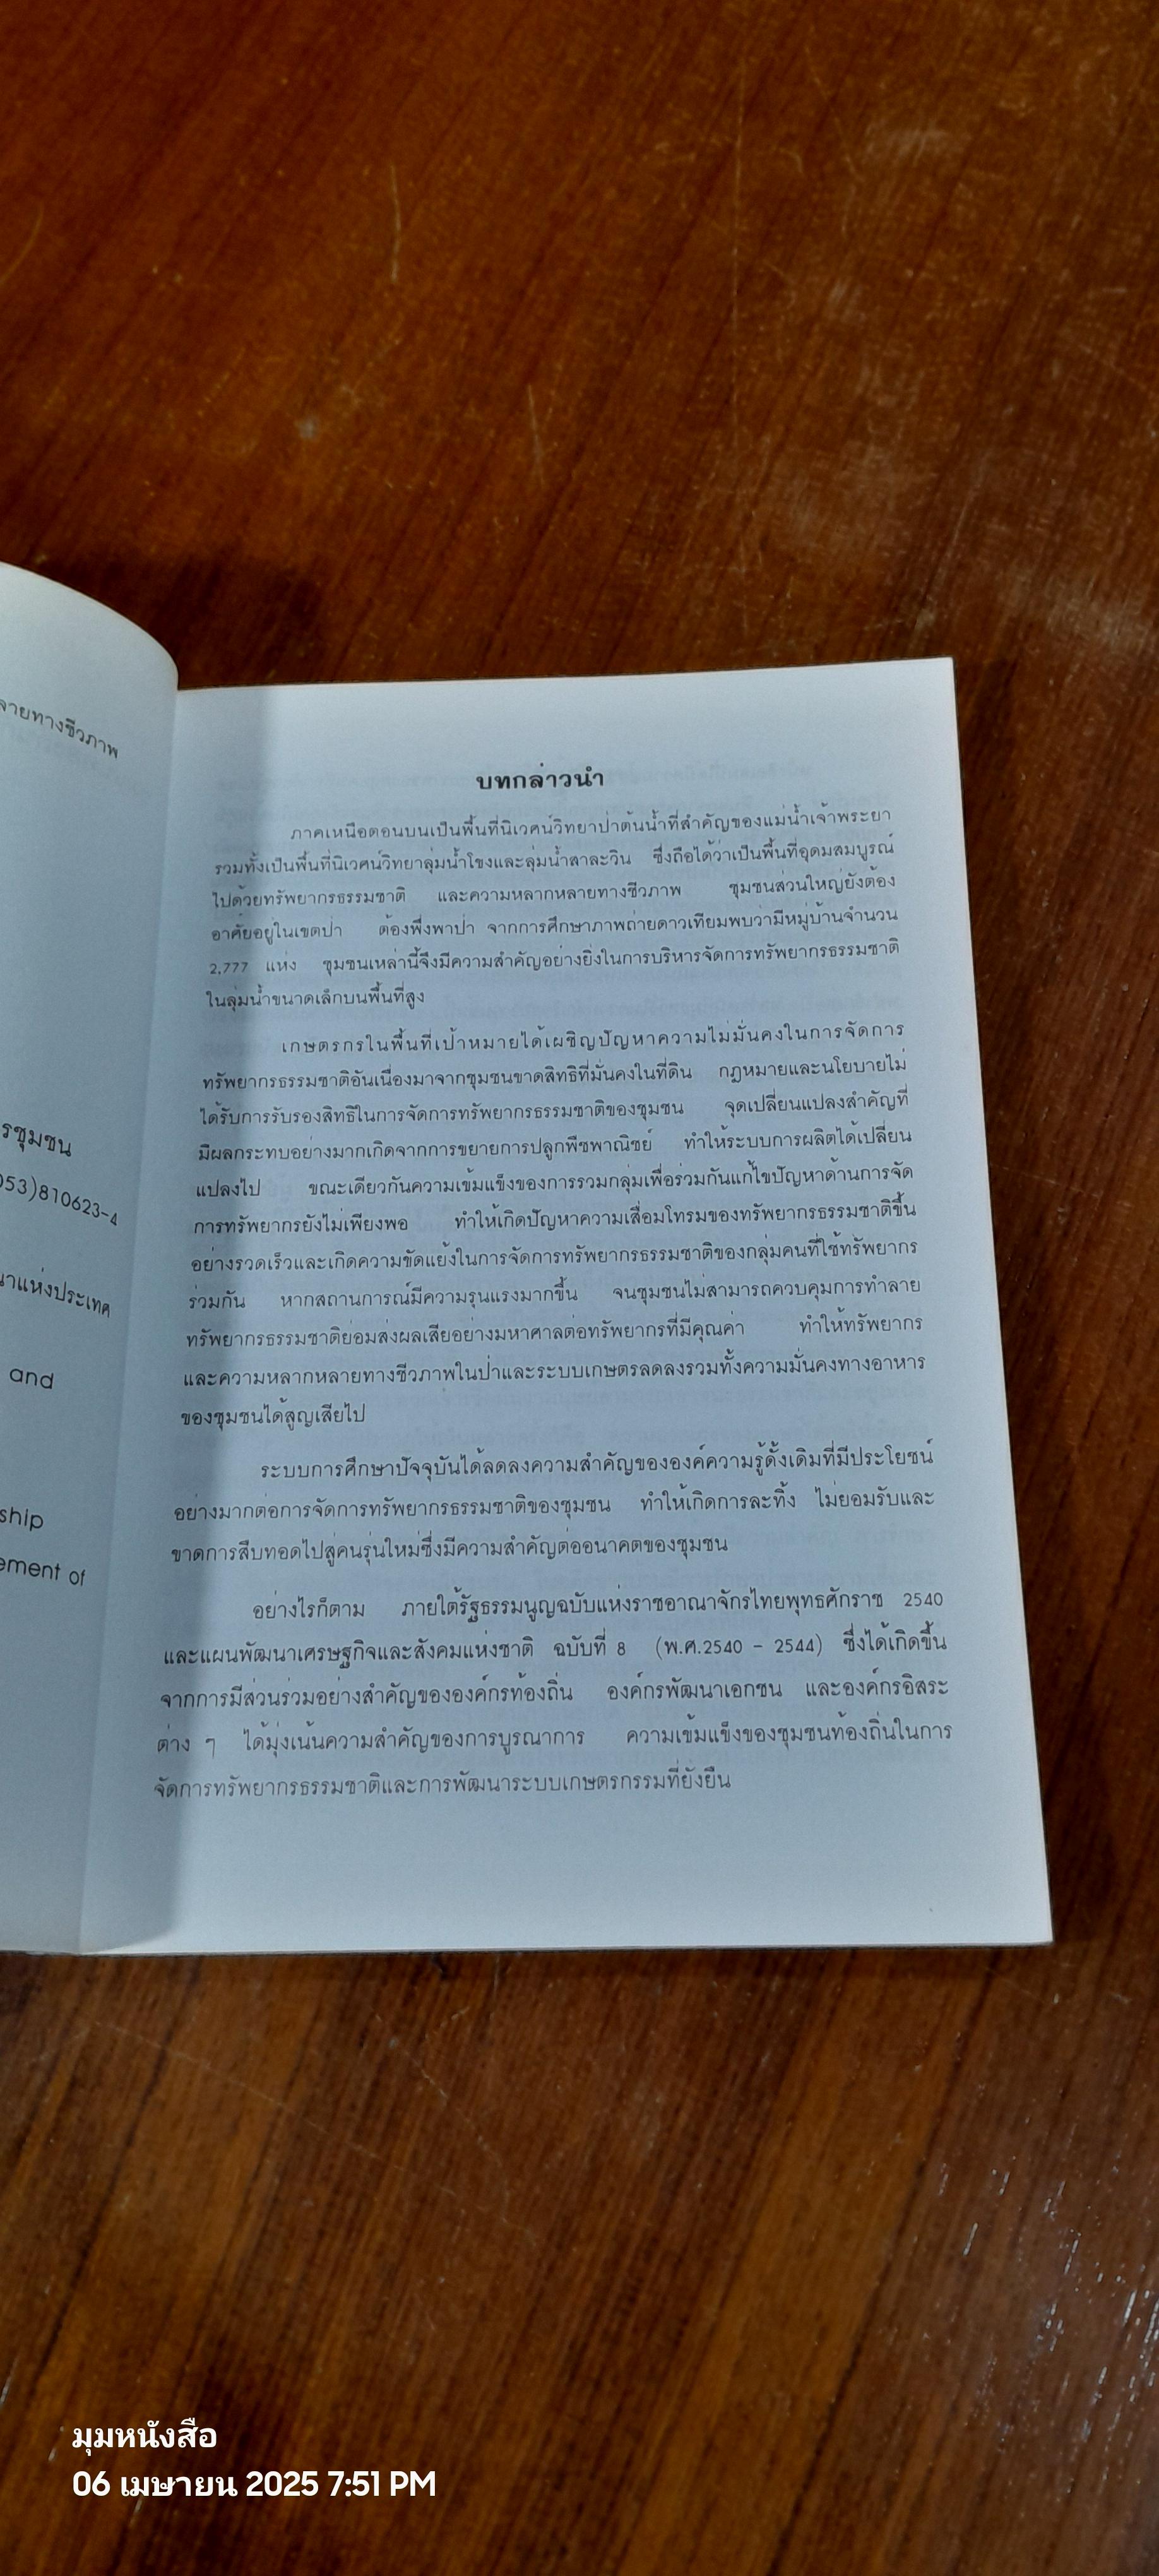 ลายทางชีวภาพ
รชุมชน
053)810623-4
นาแห่งประเทศ
and
ship
ement of
บทกล่าวนำ
ภาคเหนือตอนบนเป็นพื้นที่นิเวศน์วิทยาป่าต้นน้ำที่สำคัญของแม่น้ำเจ้าพระยา
รวมทั้งเป็นพื้นที่นิเวศน์วิทยาลุ่มน้ำโขงและลุ่มน้ำสาละวิน ซึ่งถือได้ว่าเป็นพื้นที่อุดมสมบูรณ์
ไปด้วยทรัพยากรธรรมชาติ และความหลากหลายทางชีวภาพ ชุมชนส่วนใหญ่ยังต้อง
อาศัยอยู่ในเขตป่า ต้องพึ่งพาป่า จากการศึกษาภาพถ่ายดาวเทียมพบว่ามีหมู่บ้านจำนวน
2,777 แห่ง ชุมชนเหล่านี้จึงมีความสำคัญอย่างยิ่งในการบริหารจัดการทรัพยากรธรรมชาติ
ในลุ่มน้ำขนาดเล็กบนพื้นที่สูง
เกษตรกรในพื้นที่เป้าหมายได้เผชิญปัญหาความไม่มั่นคงในการจัดการ
ทรัพยากรธรรมชาติอันเนื่องมาจากชุมชนขาดสิทธิที่มั่นคงในที่ดิน กฎหมายและนโยบายไม่
ได้รับการรับรองสิทธิในการจัดการทรัพยากรธรรมชาติของชุมชน จุดเปลี่ยนแปลงสำคัญที่
มีผลกระทบอย่างมากเกิดจากการขยายการปลูกพืชพาณิชย์ ทำให้ระบบการผลิตได้เปลี่ยน
แปลงไป ขณะเดียวกันความเข้มแข็งของการรวมกลุ่มเพื่อร่วมกันแก้ไขปัญหาด้านการจัด
การทรัพยากรยังไม่เพียงพอ ทำให้เกิดปัญหาความเสื่อมโทรมของทรัพยากรธรรมชาติขึ้น
อย่างรวดเร็วและเกิดความขัดแย้งในการจัดการทรัพยากรธรรมชาติของกลุ่มคนที่ใช้ทรัพยากร
ร่วมกัน หากสถานการณ์มีความรุนแรงมากขึ้น จนชุมชนไม่สามารถควบคุมการทำลาย
ทรัพยากรธรรมชาติย่อมส่งผลเสียอย่างมหาศาลต่อทรัพยากรที่มีคุณค่า ทำให้ทรัพยากร
และความหลากหลายทางชีวภาพในป่าและระบบเกษตรลดลงรวมทั้งความมั่นคงทางอาหาร
ของชุมชนได้สูญเสียไป
ระบบการศึกษาปัจจุบันได้ลดลงความสำคัญขององค์ความรู้ดั้งเดิมที่มีประโยชน์
อย่างมากต่อการจัดการทรัพยากรธรรมชาติของชุมชน ทำให้เกิดการละทิ้ง ไม่ยอมรับและ
ขาดการสืบทอดไปสู่คนรุ่นใหม่ซึ่งมีความสำคัญต่ออนาคตของชุมชน
อย่างไรก็ตาม ภายใต้รัฐธรรมนูญฉบับแห่งราชอาณาจักรไทยพุทธศักราช 2540
และแผนพัฒนาเศรษฐกิจและสังคมแห่งชาติ ฉบับที่ 8 (พ.ศ.2540 - 2544) ซึ่งได้เกิดขึ้น
จากการมีส่วนร่วมอย่างสำคัญขององค์กรท้องถิ่น องค์กรพัฒนาเอกชน และองค์กรอิสระ
ต่าง ๆ ได้มุ่งเน้นความสำคัญของการบูรณาการ ความเข้มแข็งของชุมชนท้องถิ่นในการ
จัดการทรัพยากรธรรมชาติและการพัฒนาระบบเกษตรกรรมที่ยั่งยืน
มุมหนังสือ
06 เมษายน 2025 7:51 PM